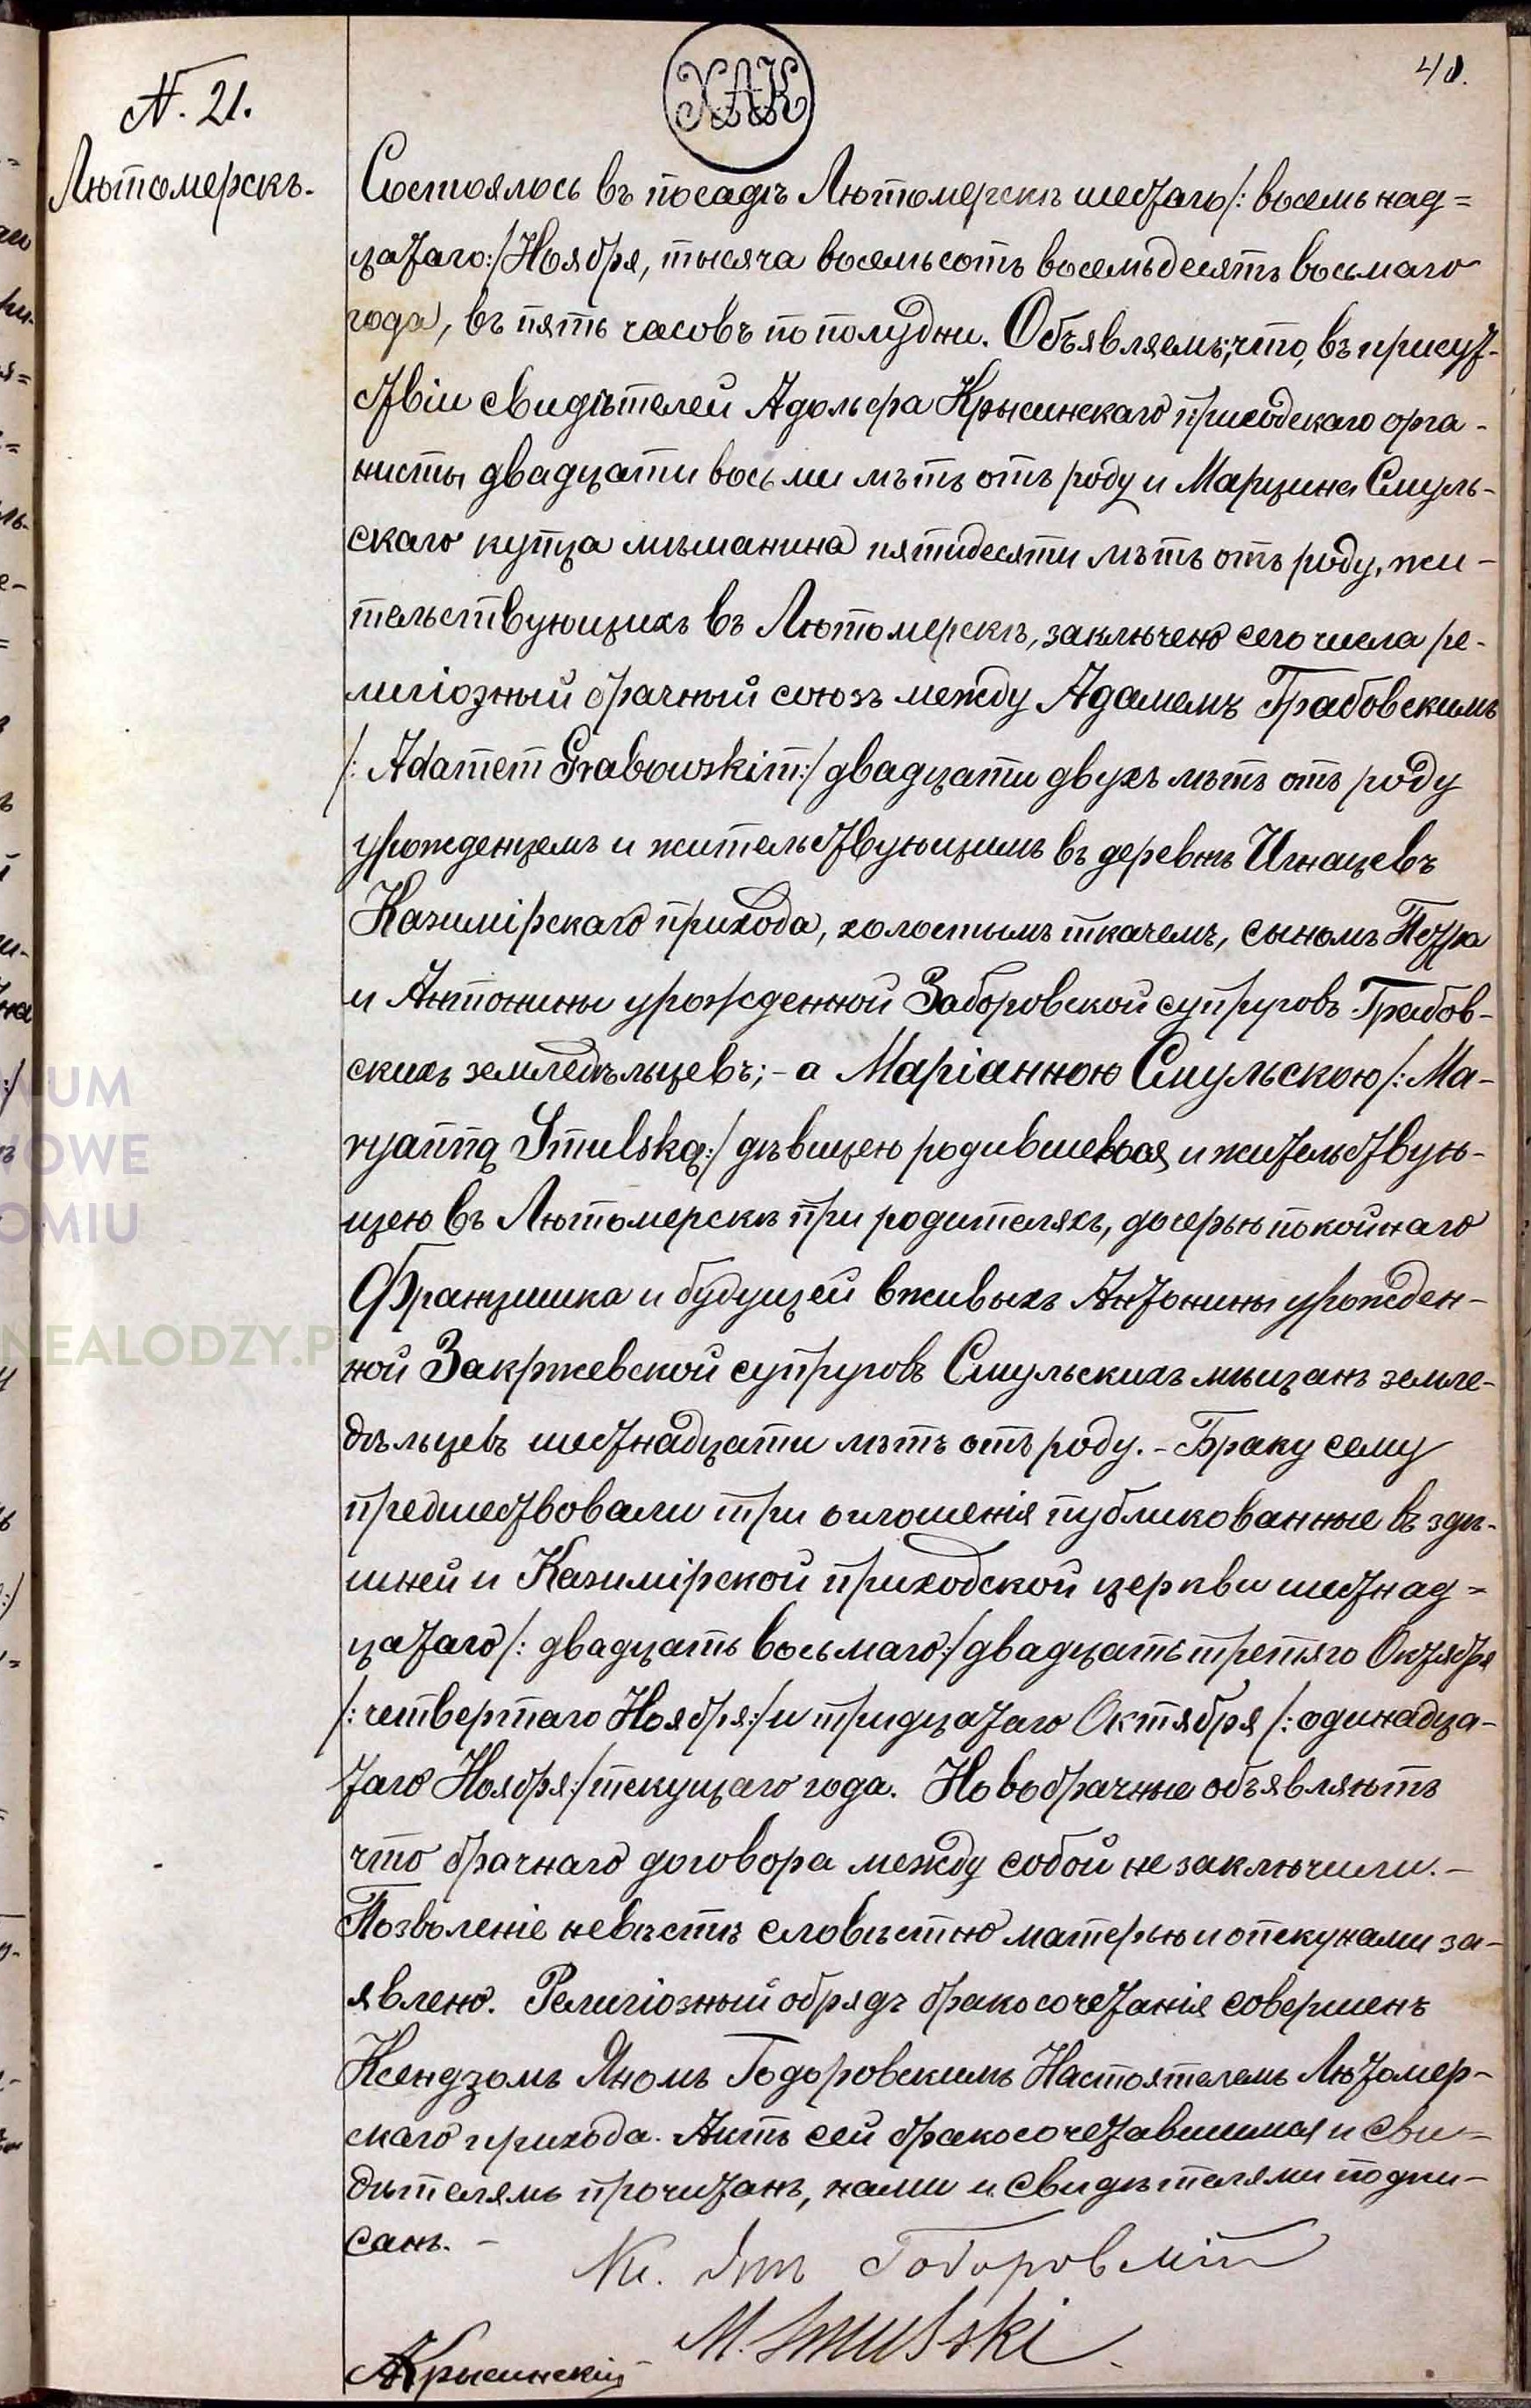 40.
N. 21.
ХАК
Лютомерскъ.
Состоялось въ посадѣ Лютомерскѣ шестаго /: восемьнад=
цатаго :/ Ноября, тысяча восемьсотъ восемьдесятъ восьмаго
года, въ пять часовъ по полудни. Объявляемъ, что, въ присут-
ствіи свидѣтелей Адольфа Крысинскаго приходскаго орга-
нисты двадцати восьми лѣтъ отъ роду и Марцина Смуль-
скаго купца мѣщанина пятидесяти лѣтъ отъ роду, жи-
тельствующихъ въ Лютомерскѣ, заключено сего числа ре-
лигіозный брачный союзъ между Адамемъ Грабовскимъ
/: Adamem Grabowskim :/ двадцати двухъ лѣтъ отъ роду
урожденцемъ и жительствующимъ въ деревнѣ Игнацевъ
Казимірскаго прихода, холостымъ ткачемъ, сыномъ Петра
и Антонины урожденной Заборовской супруговъ Грабов-
скихъ земледѣльцевъ; - а Маріанною Смульскою /: Ma-
ryanną Smulską :/ дѣвицею родившеюся и жительствую-
щею въ Лютомерскѣ при родителяхъ, дочерью покойнаго
Францишка и будущей вживыхъ Антонины урожден-
ной Закржевской супруговъ Смульскихъ мѣщанъ земле-
дѣльцевъ шестнадцати лѣтъ отъ роду. - Браку сему
предшествовали три оглошенія публикованные въ здѣ-
шней и Казимірской приходской церкви шестнад=
цатаго /: двадцать восьмаго :/ двадцать третяго Октября
/: четвертаго Ноября :/ и тридцатаго Октября /: одинадца-
таго Ноября :/ текущаго года. Новобрачные объявляютъ
что брачнаго договора между собой не заключили. -
Позволеніе невѣстѣ словѣстно матерью и опекунами за-
явлено. Религіозный обрядъ бракосочетанія совершенъ
Ксендзомъ Яномъ Годоровскимъ Настоятелемъ Лютомер-
скаго прихода. Актъ сей бракосочетавшимся и сви=
дѣтелямъ прочитанъ, нами и свидѣтелями подпи-
санъ. -
Кс. Янъ Годоровскій
M. Smulski
АКрысинскій
NEALODZY.P